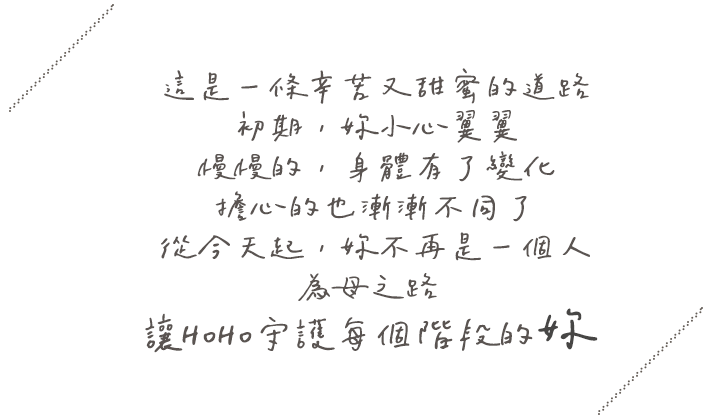 這是一條辛苦又甜蜜的道路
初期，妳小心翼翼
慢慢的，身體有了變化
擔心的也漸漸不同了
從今天起，妳不再是一個人
為母之路
讓HOHO守護每個階段的妳